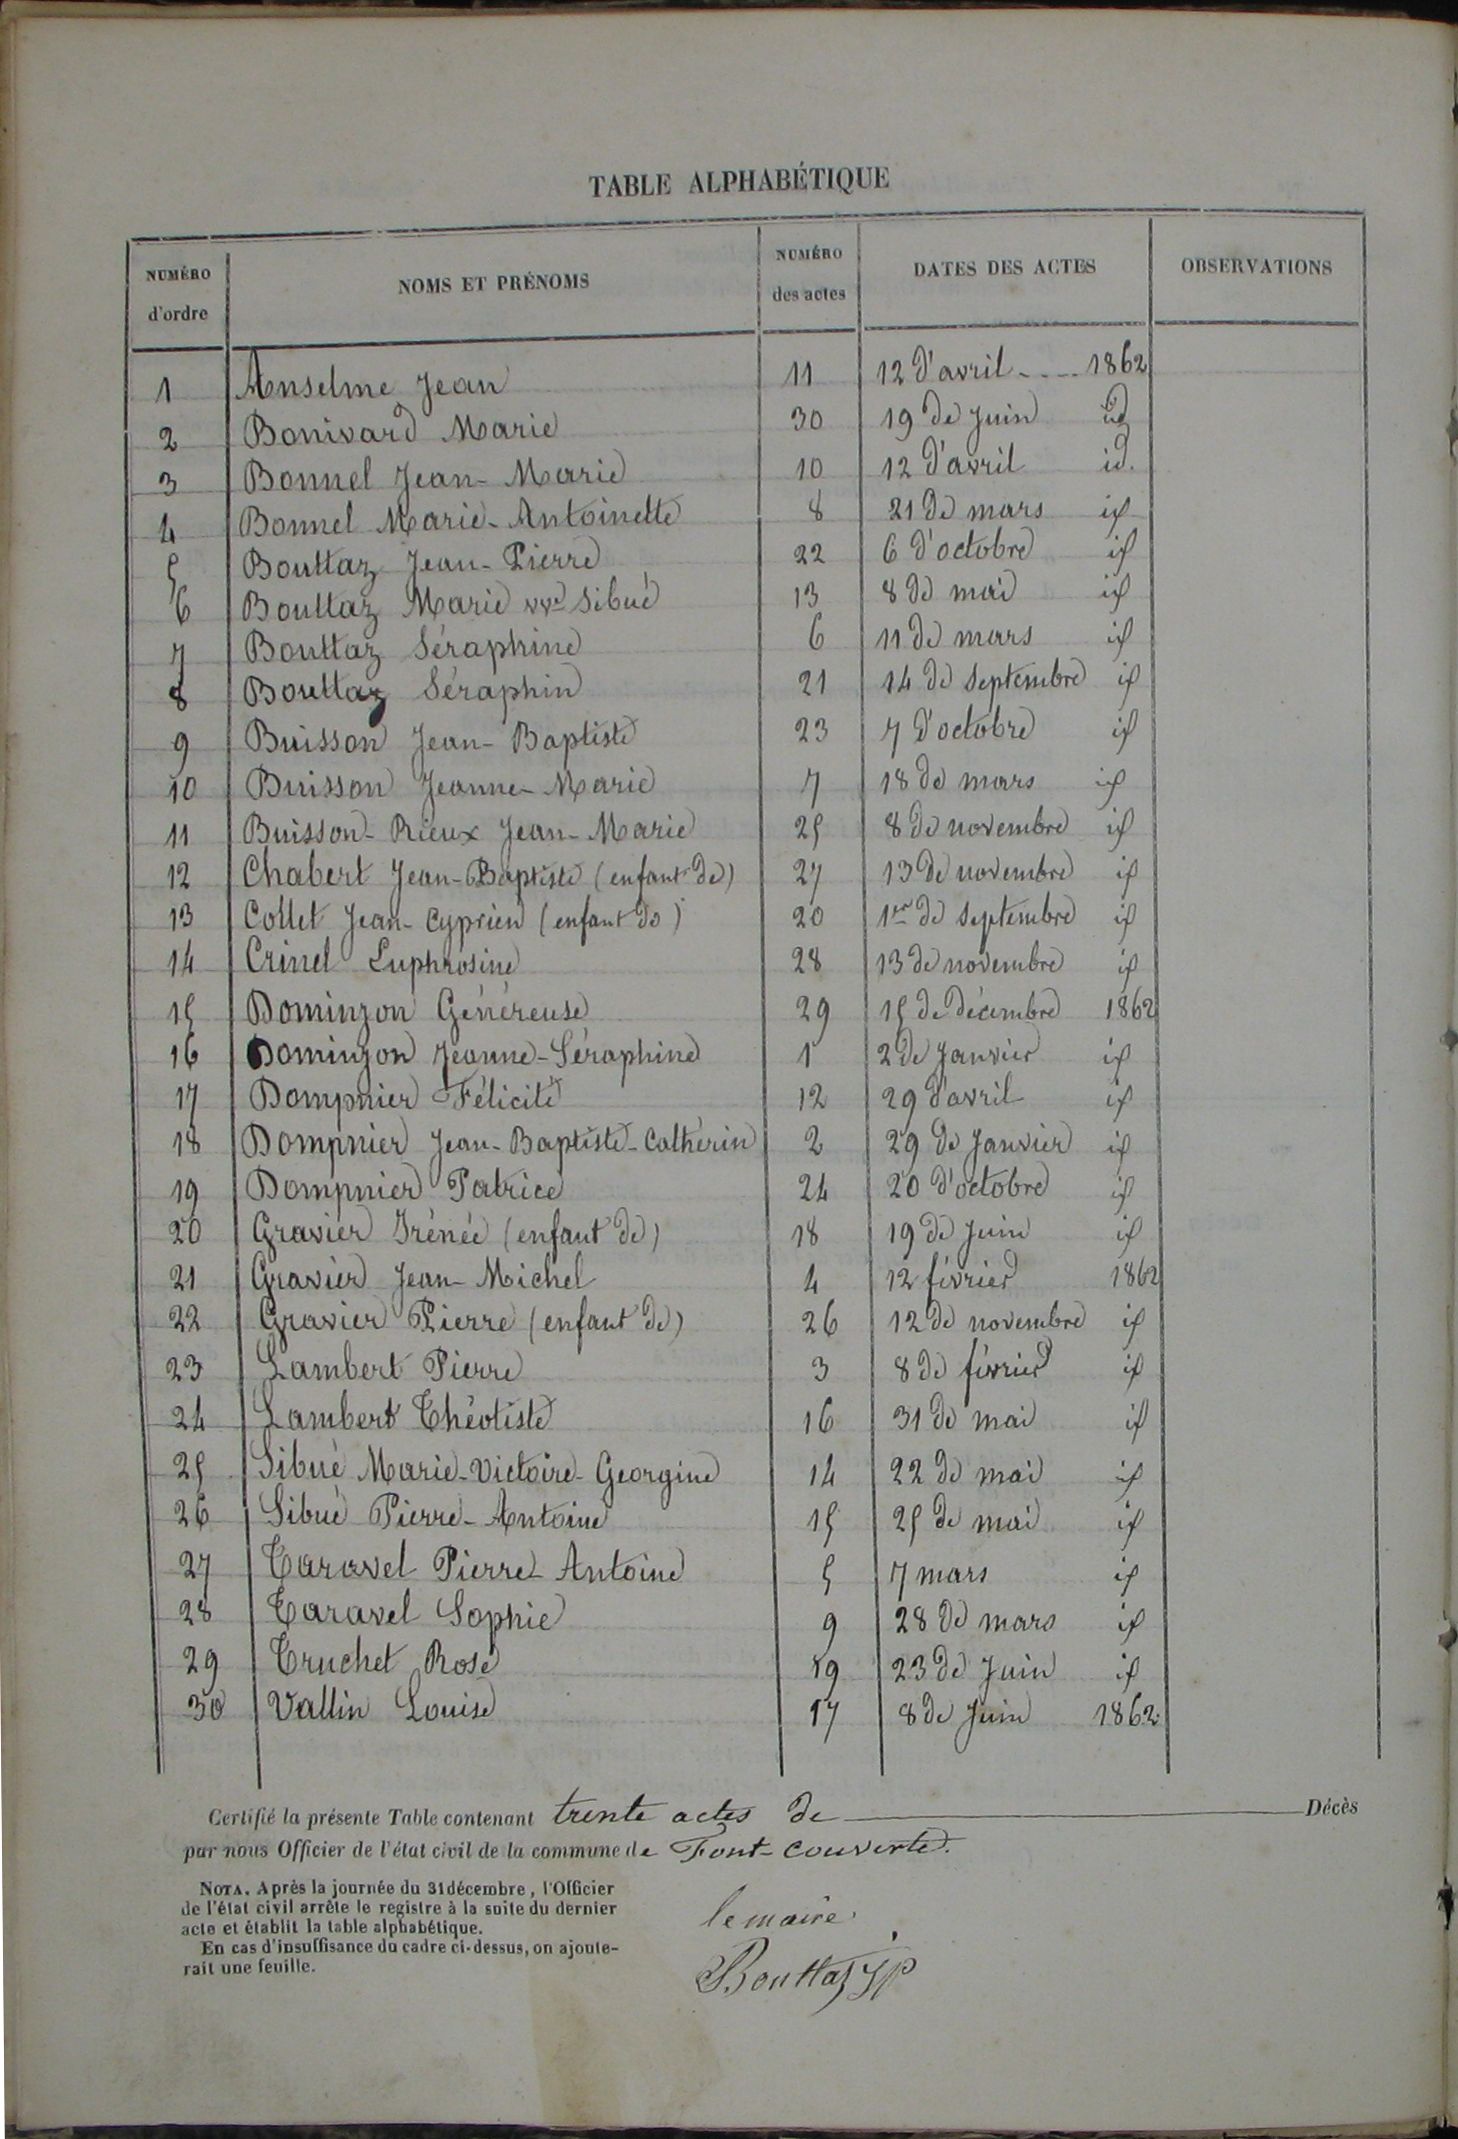 TABLE ALPHABÉTIQUE
NUMÉRO d'ordre NOMS ET PRÉNOMS NUMÉRO des actes DATES DES ACTES OBSERVATIONS
1 Anselme Jean 11 12 d'avril - - - - 1862
2 Bonivard Marie 30 19 de Juin id
3 Bonnel Jean-Marie 10 12 d'avril id.
4 Bonnel Marie-Antoinette 8 21 de mars id
5 Bouttaz Jean-Pierre 22 6 d'octobre id
6 Bouttaz Marie vve Sibué 13 8 de mai id
7 Bouttaz Séraphine 6 11 de mars id
8 Bouttaz Séraphin 21 14 de Septembre id
9 Buisson Jean-Baptiste 23 7 d'octobre id
10 Buisson Jeanne-Marie 7 18 de mars id
11 Buisson-Rieux Jean-Marie 25 8 de novembre id
12 Chabert Jean-Baptiste (enfant de) 27 13 de novembre id
13 Collet Jean-Cyprien (enfant de) 20 1er de Septembre id
14 Crinel Euphrosine 28 13 de novembre id
15 Dominjon Généreuse 29 15 de décembre 1862
16 Dominjon Jeanne-Séraphine 1 2 de Janvier id
17 Dompnier Félicité 12 29 d'avril id
18 Dompnier Jean-Baptiste-Catherin 2 29 de Janvier id
19 Dompnier Patrice 24 20 d'octobre id
20 Gravier Irénée (enfant de) 18 19 de Juin id
21 Gravier Jean-Michel 4 12 février 1862
22 Gravier Pierre (enfant de) 26 12 de novembre id
23 Lambert Pierre 3 8 de février id
24 Lambert Théotiste 16 31 de mai id
25 Sibué Marie-Victoire-Georgine 14 22 de mai id
26 Sibué Pierre-Antoine 15 25 de mai id
27 Taravel Pierre-Antoine 5 7 mars id
28 Taravel Sophie 9 28 de mars id
29 Truchet Rose 19 23 de Juin id
30 Vallin Louise 17 8 de Juin 1862
Certifié la présente Table contenant trente actes de Décès
par nous Officier de l'état civil de la commune de Font-couverte.
NOTA. Après la journée du 31 décembre, l'Officier
de l'état civil arrête le registre à la suite du dernier
acte et établit la table alphabétique.
En cas d'insuffisance du cadre ci-dessus, on ajoute-
rait une feuille.
le maire
Bouttaz JP